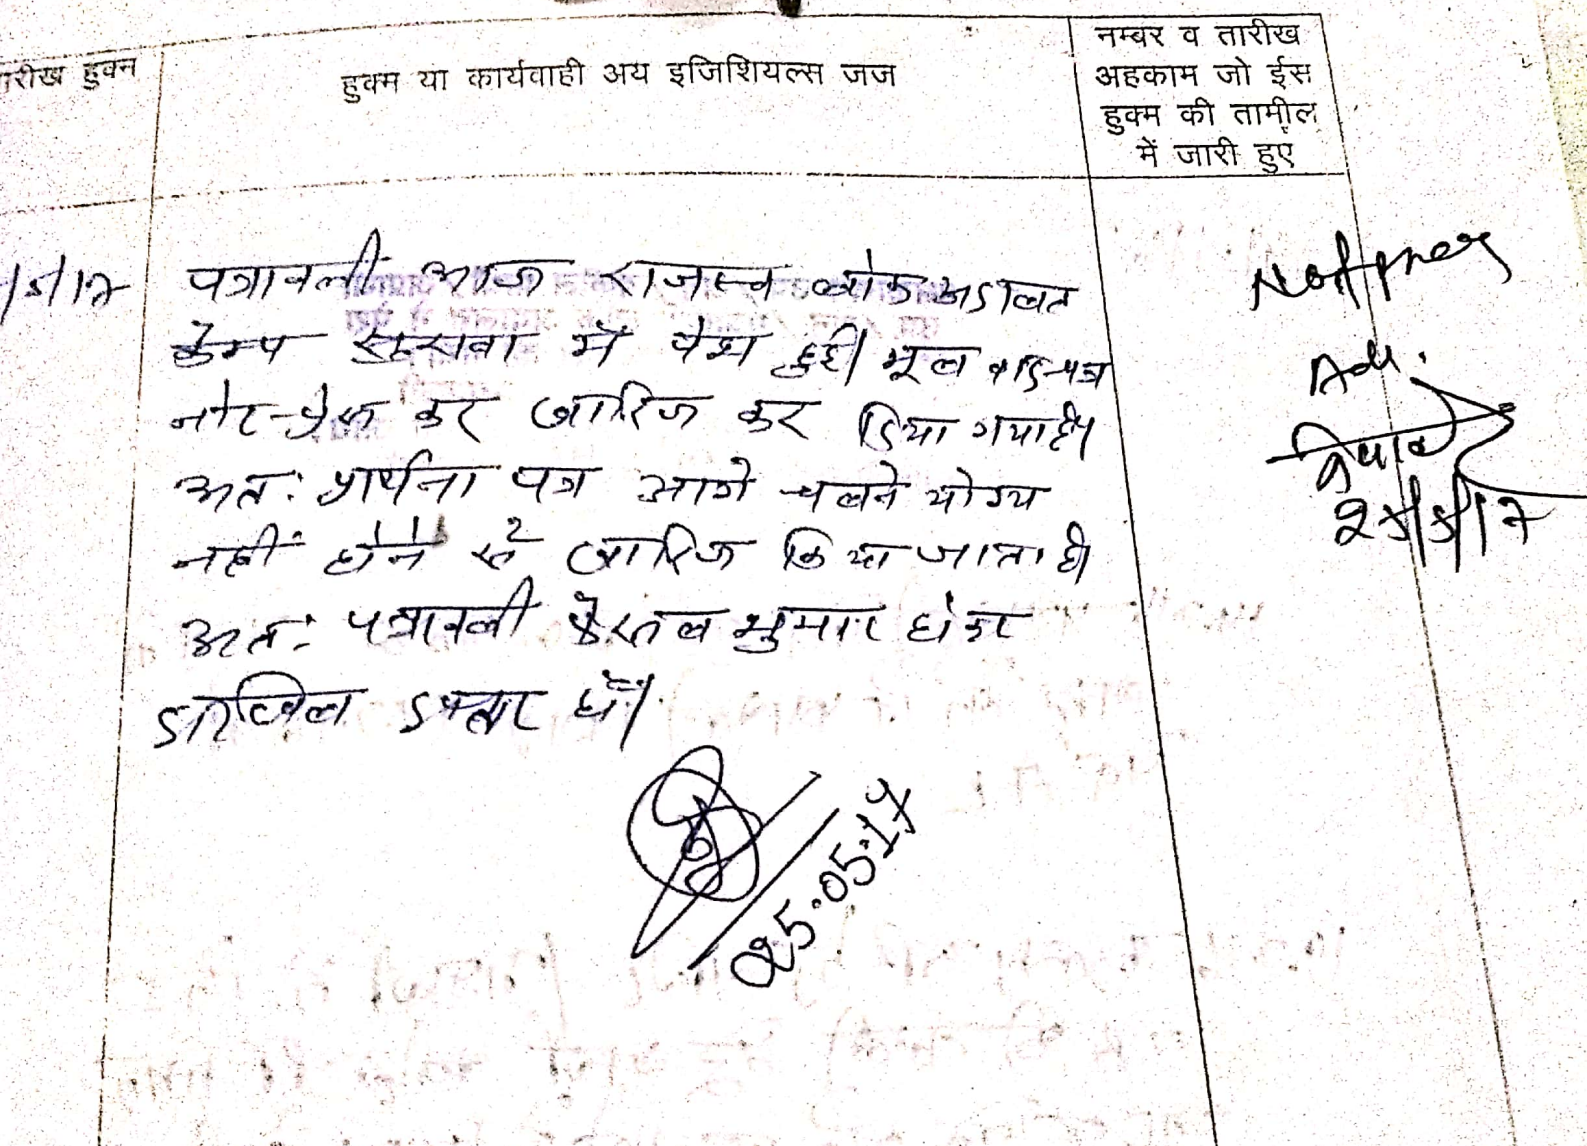 तारीख हुक्म
हुक्म या कार्यवाही अय इजिशियल्स जज
नम्बर व तारीख
अहकाम जो ईस
हुक्म की तामील
में जारी हुए
/5/17
पत्रावली आज राजस्व लोक अदालत
केम्प में पेश हुई। मूल वाद-पत्र
नोट-प्रेस कर खारिज कर दिया गया है।
अतः प्रार्थना पत्र आगे चलने योग्य
नहीं होने से खारिज किया जाता है।
अतः पत्रावली फैसल शुमार होकर
दाखिल दफ्तर हो।
25.05.17
Not press
Adv.
25/5/17